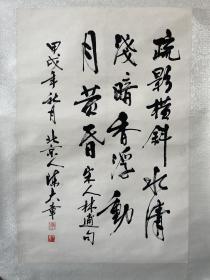 疏影横斜水清
浅暗香浮動
月黄昏 宋人林逋句
甲戌年秋月北京人陈大章